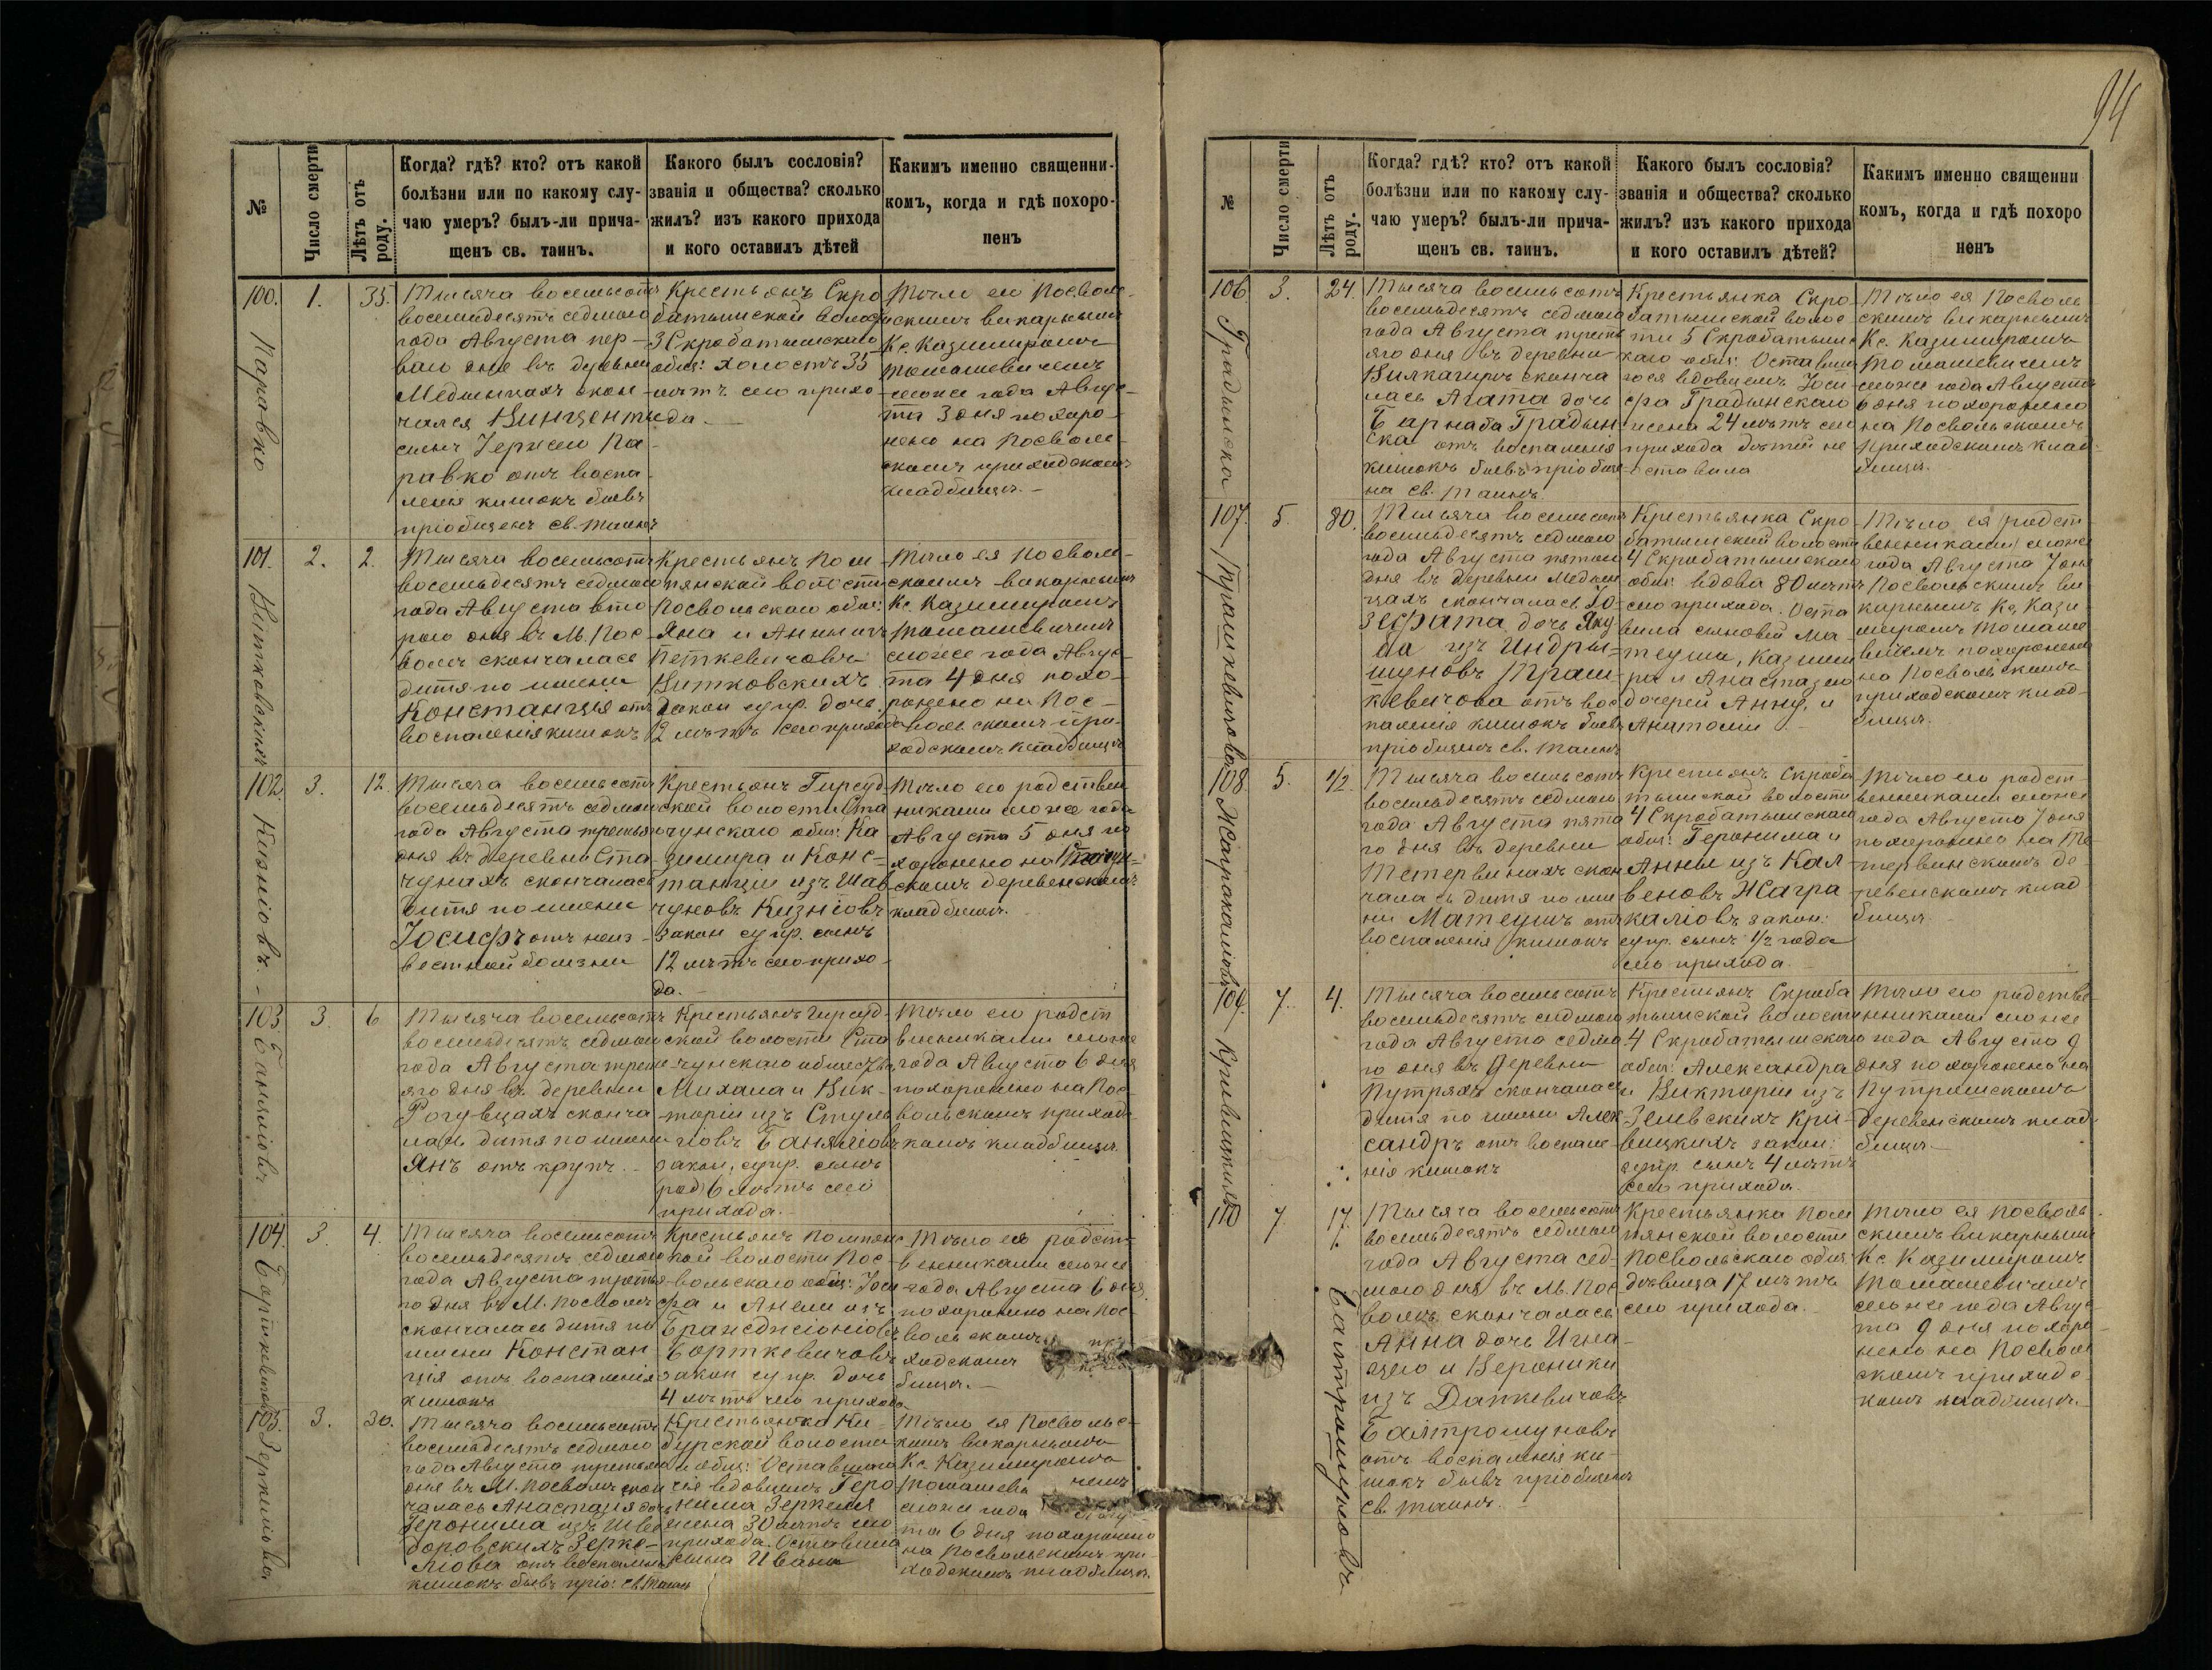 94
№
Число смерти
Лѣтъ отъ роду.
Когда? гдѣ? кто? отъ какой
болѣзни или по какому слу-
чаю умеръ? былъ-ли прича-
щенъ св. таинъ.
Какого былъ сословія?
званія и общества? сколько
жилъ? изъ какого прихода
и кого оставилъ дѣтей
Какимъ именно священни-
комъ, когда и гдѣ похоро-
ненъ
100.
Паравко
1.
35.
Тысяча восемьсотъ
восемьдесятъ седмого
года Августа пер-
ваго дня въ деревни
Медынцахъ скон-
чался Винцентъ
сынъ Іержего Па-
равко отъ воспа-
ленія кишокъ бывъ
пріобщенъ св. таинъ
Крестьянъ Скро
батышской волости
3 Скробатышскаго
общ: холостъ 35
лѣтъ сего прихо-
да.
Тѣло его Посволь-
скимъ викарнымъ
Кс. Казимиромъ
Томашевичемъ
сегоже года Авгус-
та 3 дня похоро-
нено на Посволь-
скомъ приходскомъ
кладбищѣ.
101.
Витковскихъ
2.
2.
Тысяча восемьсотъ
восемьдесятъ седмого
года Августа вто
рого дня въ М. Пос-
волѣ скончалась
дитя по имени
Констанція отъ
воспаленія кишокъ
Крестьянъ Пом
пянской волости
Посвольскаго общ:
Яна и Анны изъ
Петкевичовъ
Витковскихъ
закон супр. дочь
2 лѣтъ сего прихода
Тѣло ея Посволь-
скимъ викарнымъ
Кс. Казимиромъ
Томашевичемъ
сегоже года Авгус-
та 4 дня похо-
ронено на Пос-
вольскомъ при-
ходскомъ кладбищѣ
102.
Кизніовъ.
3.
12.
Тысяча восемьсотъ
восемьдесятъ седмого
года Августа третьяго
дня въ деревни Ста-
чунахъ скончалась
дитя по имени
Юсифъ отъ неиз-
вестной болезни
Крестьянъ Гирсуд-
ской волости Ста
чунскаго общ: Ка
зимира и Конс-
танціи изъ Шав
чуновъ Кизніовъ
закон супр. сынъ
12 лѣтъ сего прихо-
да.
Тѣло его родствен
никами сегоже года
Августа 5 дня по
хоронено на
скомъ деревенскомъ
кладбищѣ.
103.
Баняліовъ
3.
6
Тысяча восемьсотъ
восемьдесятъ седмого
года Августа треть
яго дня въ деревни
Рогувцахъ сконча-
лась дитя по имени
Янъ отъ крупъ.
Крестьянъ Гирсуд-
ской волости Ста
чунскаго общества
Михала и Вик-
торіи изъ Стуль
гіовъ Баняліовъ
закон. супр. сынъ
род 6 лѣтъ сего
прихода.
Тѣло его родст
венниками сегоже
года Августа 6 дня
похоронено на Пос-
вольскомъ приход-
скомъ кладбищѣ.
104.
Борткевичовъ
3.
4.
Тысяча восемьсотъ
восемьдесятъ седмого
года Августа третья-
го дня въ М. Посволѣ
скончалась дитя по
имени Констан
ція отъ воспаленія
кишокъ
Крестьянъ Помпянс-
кой волости Пос-
вольскаго общ: Юси
фа и Анели изъ
Борткевичовъ
закон супр. дочь
4 лѣтъ сего прихода
Тѣло ея родст-
венниками сегоже
года Августа 6 дня
похоронено на Пос-
вольскомъ
ходскомъ
бищѣ.
105.
Зеркиліова
3.
30.
Тысяча восемьсотъ
восемьдесятъ седмого
года Августа третьяго
дня въ М. Посволѣ скон
чалась Анастазія дочь
Геронима изъ Шве
боровскихъ Зерке-
ліова отъ воспаленія
кишокъ бывъ пріо: св. таинъ
Крестьянка Ки-
бурской волости
и общ: Оставшаго
ся вдовцемъ Геро
нима Зеркеля
жена 30 лѣтъ сего
прихода. Оставила
сына Ивана
Тѣло ея Посвольс-
кимъ викарнымъ
Кс. Казимиромъ
Томашеви чемъ
сегоже года Авгу
та 6 дня похоронено
на Посвольскомъ при-
ходскомъ кладбищѣ.
№
Число смерти
Лѣтъ отъ роду.
Когда? гдѣ? кто? отъ какой
болѣзни или по какому слу-
чаю умеръ? былъ-ли прича-
щенъ св. таинъ.
Какого былъ сословія?
званія и общества? сколько
жилъ? изъ какого прихода
и кого оставилъ дѣтей?
Какимъ именно священни
комъ, когда и гдѣ похоро
ненъ
106.
Градынска
3.
24.
Тысяча восемьсотъ
восемьдесятъ седмого
года Августа треть
яго дня въ деревни
Вилкагирѣ сконча
лась Агата дочь
Барнаба Градын
ска отъ воспаленія
кишокъ бывъ пріобще-
на св. таинъ.
Крестьянка Скро-
батышской волос
ти 5 Скробатыш
скаго общ: Оставша
гося вдовцемъ Юси-
фа Градынскаго
жена 24 лѣтъ сего
прихода дѣтей не
оставила
Тѣло ея Посволь
скимъ викарнымъ
Кс. Казимиромъ
Томашевичемъ
сегоже года Августа
6 дня похоронено
на Посвольскомъ
приходскомъ клад-
бищѣ.
107.
Трашкевичова
5.
80.
Тысяча восемьсотъ
восемьдесятъ седмого
года Августа пятаго
дня въ деревни Медын
цахъ скончалась Ю-
зефата дочь Яку
ба изъ Индры-
шуновъ Траш-
кевичова отъ вос
паленія кишокъ бывъ
пріобщенъ св. таинъ
Крестьянка Скро-
батышской волости
4 Скробатышскаго
общ: вдова 80 лѣтъ
сего прихода. Оста
вила сыновей Ма-
теуша, Казими
ра и Анастазего
дочерей Анну, и
Анатолію.
Тѣло ея родст
венниками сегоже
года Августа 7 дня
Посвольскимъ ви
карнымъ Кс. Кази
миромъ Томаше
вичемъ похоронено
на Посвольскомъ
приходскомъ клад-
бищѣ.
108.
Жагракаліовъ
5.
1/2
Тысяча восемьсотъ
восемьдесятъ седмого
года Августа пята
го дня въ деревни
Тетервинахъ скон
чалась дитя по име
ни Матеушъ отъ
воспаленія кишокъ
Крестьянъ Скроба
тышской волости
4 Скробатышскаго
общ: Геронима и
Анны изъ Кал
веновъ Жагра
каліовъ закон:
супр. сынъ 1/2 года
сего прихода.
Тѣло его родст-
венниками сегоже
года Августа 7 дня
похоронено на Те
тервинскомъ де-
ревенскомъ клад
бищѣ.
109.
Кривицкихъ
7.
4.
Тысяча восемьсотъ
восемьдесятъ седмого
года Августа седма
го дня въ деревни
Путряхъ скончалась
дитя по имени Алек-
сандръ отъ воспале-
нія кишокъ
Крестьянъ Скроба
тышской волости
4 Скробатышскаго
общ: Александра
и Викторіи изъ
Зелвскихъ Кри-
вицкихъ закон:
супр. сынъ 4 лѣтъ
сего прихода.
Тѣло его родстве
нниками сегоже
года Августа 9
дня похоронено на
Путришскомъ
деревенскомъ клад
бищѣ.
110
Баптрошуновъ
7.
17.
Тысяча восемьсотъ
восемьдесятъ седмого
года Августа сед-
мого дня въ М. Пос
волѣ скончалась
Анна дочь Игна-
цего и Вероники
изъ Дапкевичовъ
Баятрошуновъ
отъ воспаленія ки-
шокъ бывъ пріобщенъ
св. таинъ.
Крестьянка Пом
пянской волости
Посвольскаго общ:
дѣвица 17 лѣтъ
сего прихода.
Тѣло ея Посволь-
скимъ викарнымъ
Кс. Казимиромъ
Томашевичемъ
сегоже года Авгус-
та 9 дня похоро-
нено на Посволь
скомъ приходс-
комъ кладбищѣ.